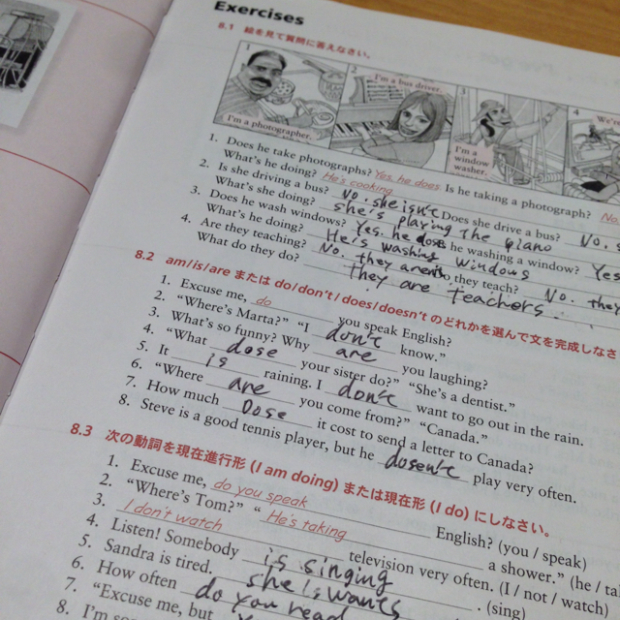 Exercises
8.1 絵を見て質問に答えなさい。
1
I'm a photographer.
2
I'm a bus driver.
3
I'm a window washer.
4
We're
1. Does he take photographs? Yes, he does. Is he taking a photograph? No,
What's he doing? He's cooking.
2. Is she driving a bus? No. she isn't Does she drive a bus? No. s
What's she doing? she's playing the piano
3. Does he wash windows? Yes. he dose he washing a window? Yes
What's he doing? He's washing windows
4. Are they teaching? No. they aren't do they teach? No. they
What do they do? They are teachers.
8.2 am/is/are または do/don't/does/doesn't のどれかを選んで文を完成しなさ
1. Excuse me, do you speak English?
2. "Where's Marta?" "I don't know."
3. What's so funny? Why are you laughing?
4. "What dose your sister do?" "She's a dentist."
5. It is raining. I don't want to go out in the rain.
6. "Where are you come from?" "Canada."
7. How much Dose it cost to send a letter to Canada?
8. Steve is a good tennis player, but he dosen't play very often.
8.3 次の動詞を現在進行形 (I am doing) または現在形 (I do) にしなさい。
1. Excuse me, do you speak English? (you / speak)
2. "Where's Tom?" " He's taking a shower." (he / ta
3. I don't watch television very often. (I / not / watch)
4. Listen! Somebody is singing . (sing)
5. Sandra is tired. she is wants
6. How often do you read
7. "Excuse me, but
8. I'm so